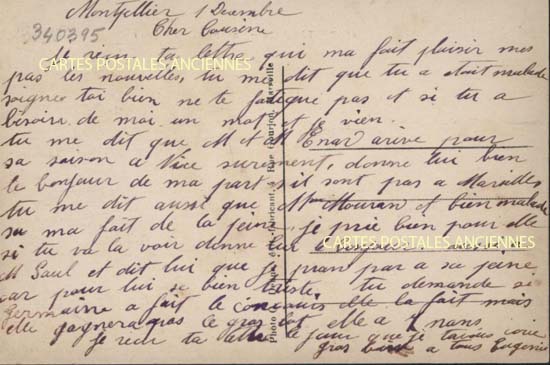 Montpellier 1 Decembre
340395
Cher Cousine
Je recu ta lettre qui ma fait plaisir mes
CARTES POSTALES ANCIENNES
pas les nouvelles, tu me dit que tu a etait malade
soigne toi bien ne te fatigue pas et si tu a
bisoin de moi un mot et je vien.
tu me dit que M et M Enar arive pour
sa saison a Nice surement, donne lui bien
le bonjour de ma part s'il sont pas a Marseille
tu me dit aussi que Mme Mouran et bien malade
sa ma fait de la peine, je prie bien pour elle
si tu va la voir donne lui le bonjour
CARTES POSTALES ANCIENNES
M Paul et dit lui que je pran par a sa peine
car pour lui se bien triste tu demande si
germaine a fait le concours elle la fait mais
elle gagnera pas le gros lot elle a ans
je recu ta lettre le jour que je
gros a tous Eugenie
Photo fabricant, 4 Rue Marseille